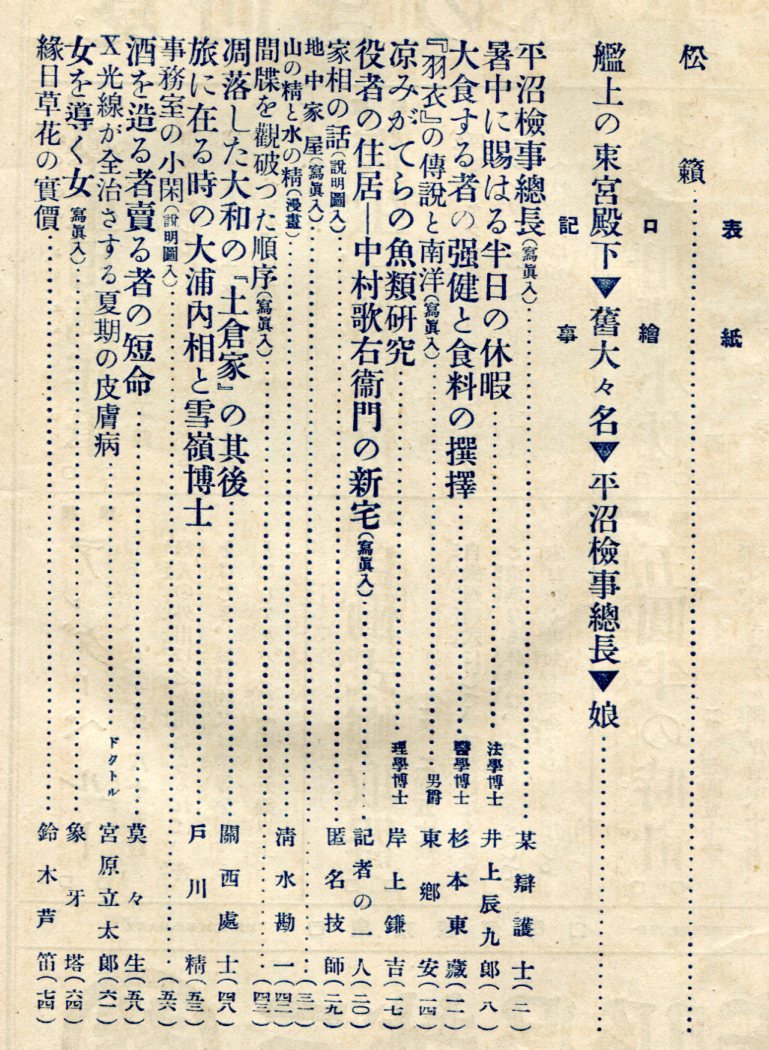 表紙
松籟
口繪
艦上の東宮殿下▼舊大々名▼平沼檢事總長▼娘
記事
平沼檢事總長(寫眞入)……某辯護士(二)
暑中に賜はる半日の休暇……法學博士 井上辰九郎(八)
大食する者の强健と食料の撰擇……醫學博士 杉本東藏(一一)
『羽衣』の傳說と南洋(寫眞入)……男爵 東鄕安(一四)
凉みがてらの魚類研究……理學博士 岸上鎌吉(一七)
役者の住居―中村歌右衞門の新宅(寫眞入)……記者の一人(二〇)
家相の話(說明圖入)……匿名技師(二九)
地中家屋(寫眞入)……(三一)
山の精と水の精(漫畫)……淸水勘一(四二)
間牒を觀破つた順序(寫眞入)……(四三)
凋落した大和の『土倉家』の其後……關西處士(四八)
旅に在る時の大浦內相と雪嶺博士……戶川精(五三)
事務室の小閑(說明圖入)……(五六)
酒を造る者賣る者の短命……莫々生(五八)
X光線が全治さする夏期の皮膚病……ドクトル 宮原立太郎(六一)
女を導く女(寫眞入)……象牙塔(六四)
緣日草花の實價……鈴木芦笛(七四)